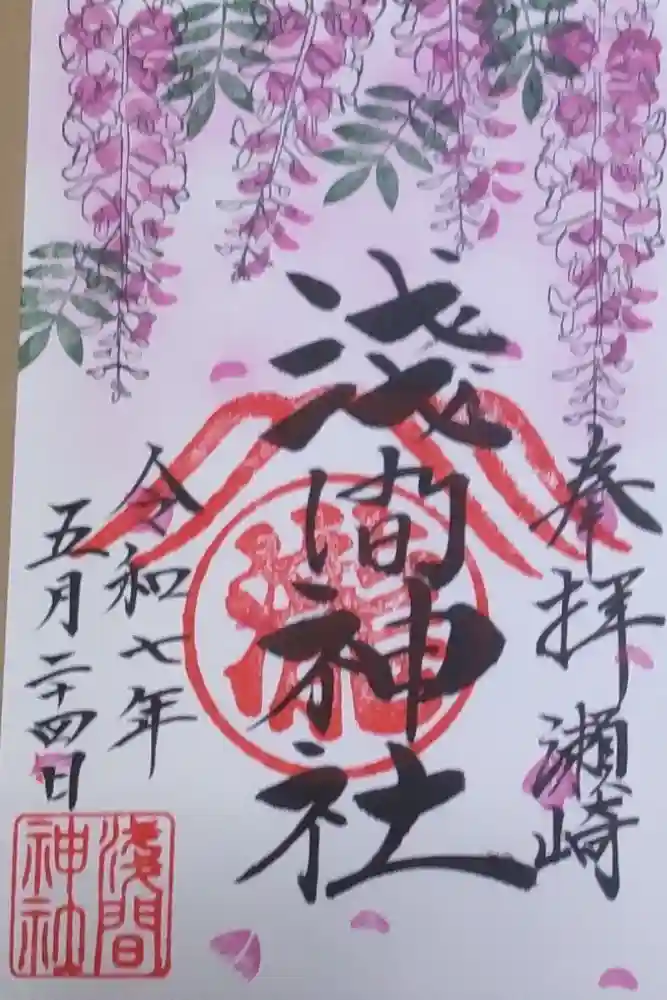 奉拝 瀬崎
淺间神社
令和七年
五月二十四日
淺間神社